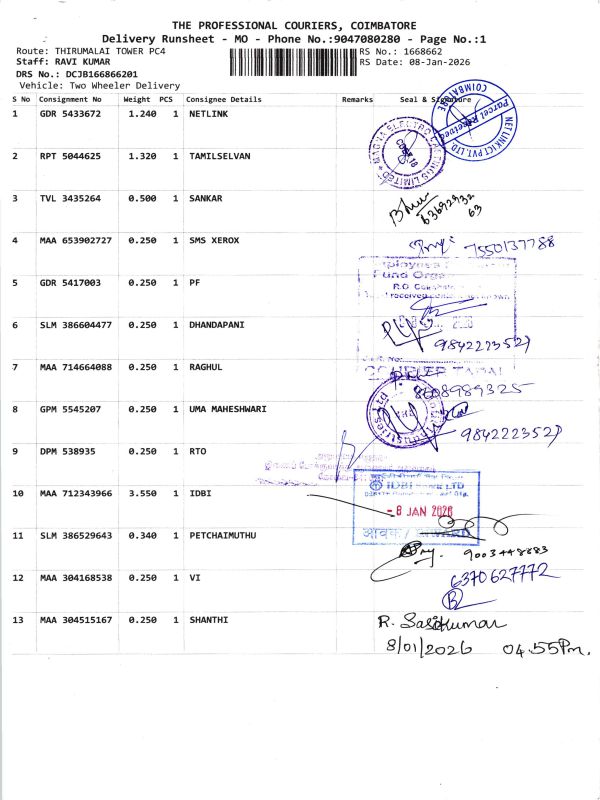 THE PROFESSIONAL COURIERS, COIMBATORE
Delivery Runsheet - MO - Phone No.:9047080280 - Page No.:1
Route: THIRUMALAI TOWER PC4 RS No.: 1668662
Staff: RAVI KUMAR RS Date: 08-Jan-2026
DRS No.: DCJB166866201
Vehicle: Two Wheeler Delivery
S No Consignment No Weight PCS Consignee Details Remarks Seal & Signature
COIMBATORE
Parcel Received
NET LINK ICT PVT. LTD
1 GDR 5433672 1.240 1 NETLINK
2 RPT 5044625 1.320 1 TAMILSELVAN
LIMITED
3 TVL 3435264 0.500 1 SANKAR
63692932
63
4 MAA 653902727 0.250 1 SMS XEROX
7550137788
Fund
5 GDR 5417003 0.250 1 PF
received
6 SLM 386604477 0.250 1 DHANDAPANI
2026
9842223527
7 MAA 714664088 0.250 1 RAGHUL
COURIER TAPAL
8608989325
8 GPM 5545207 0.250 1 UMA MAHESHWARI
9842223527
9 DPM 538935 0.250 1 RTO
10 MAA 712343966 3.550 1 IDBI
IDBI Bank LTD
- 8 JAN 2026
आवक / INWARD
11 SLM 386529643 0.340 1 PETCHAIMUTHU
9003448883
12 MAA 304168538 0.250 1 VI
6370627772
13 MAA 304515167 0.250 1 SHANTHI
R. Sasikumar
8/01/2026 04.55Pm.